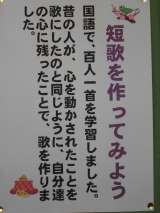 短歌を作ってみよう
国語で、百人一首を学習しました。
昔の人が、心を動かされたことを
歌にしたのと同じように、自分達
の心に残ったことで、歌を作りま
した。